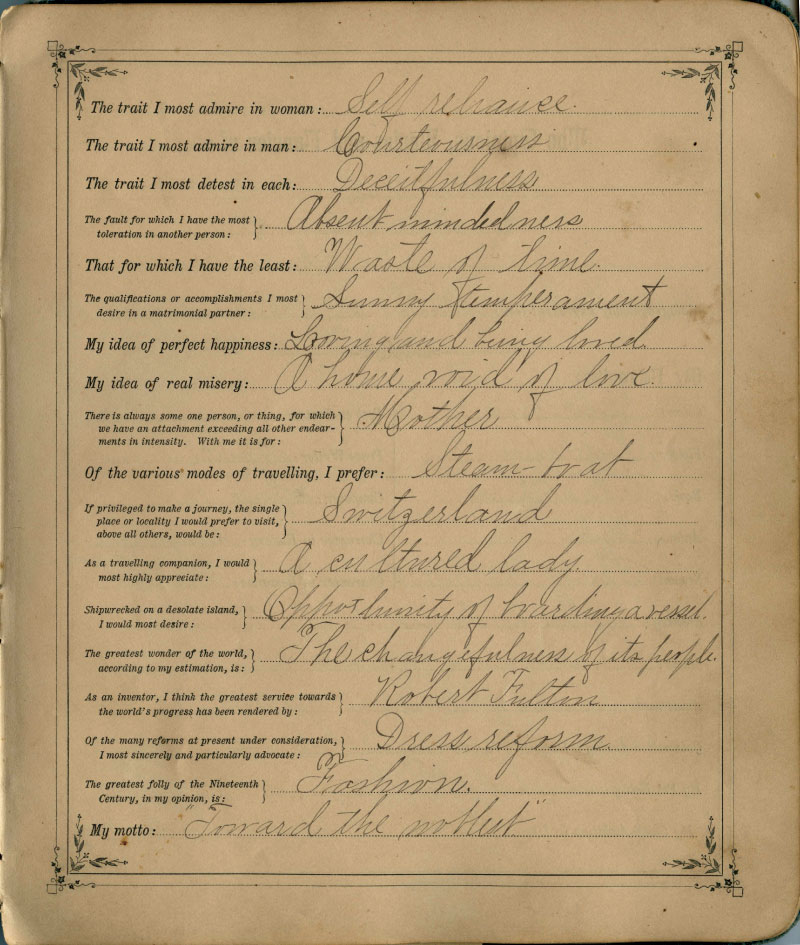 The trait I most admire in woman: Self reliance.
The trait I most admire in man: Courteousness
The trait I most detest in each: Deceitfulness
The fault for which I have the most
toleration in another person: Absent mindedness
That for which I have the least: Waste of time.
The qualifications or accomplishments I most
desire in a matrimonial partner: Sunny temperament
My idea of perfect happiness: Loving and being loved
My idea of real misery: A home void of love.
There is always some one person, or thing, for which
we have an attachment exceeding all other endear-
ments in intensity. With me it is for: Mother
Of the various modes of travelling, I prefer: Steam-boat
If privileged to make a journey, the single
place or locality I would prefer to visit,
above all others, would be: Switzerland
As a travelling companion, I would
most highly appreciate: A cultured lady
Shipwrecked on a desolate island,
I would most desire: Opportunity of boarding a vessel.
The greatest wonder of the world,
according to my estimation, is: The changefulness of its people.
As an inventor, I think the greatest service towards
the world's progress has been rendered by: Robert Fulton
Of the many reforms at present under consideration,
I most sincerely and particularly advocate: Dress reform
The greatest folly of the Nineteenth
Century, in my opinion, is: Fashion.
My motto: "Toward the noblest"